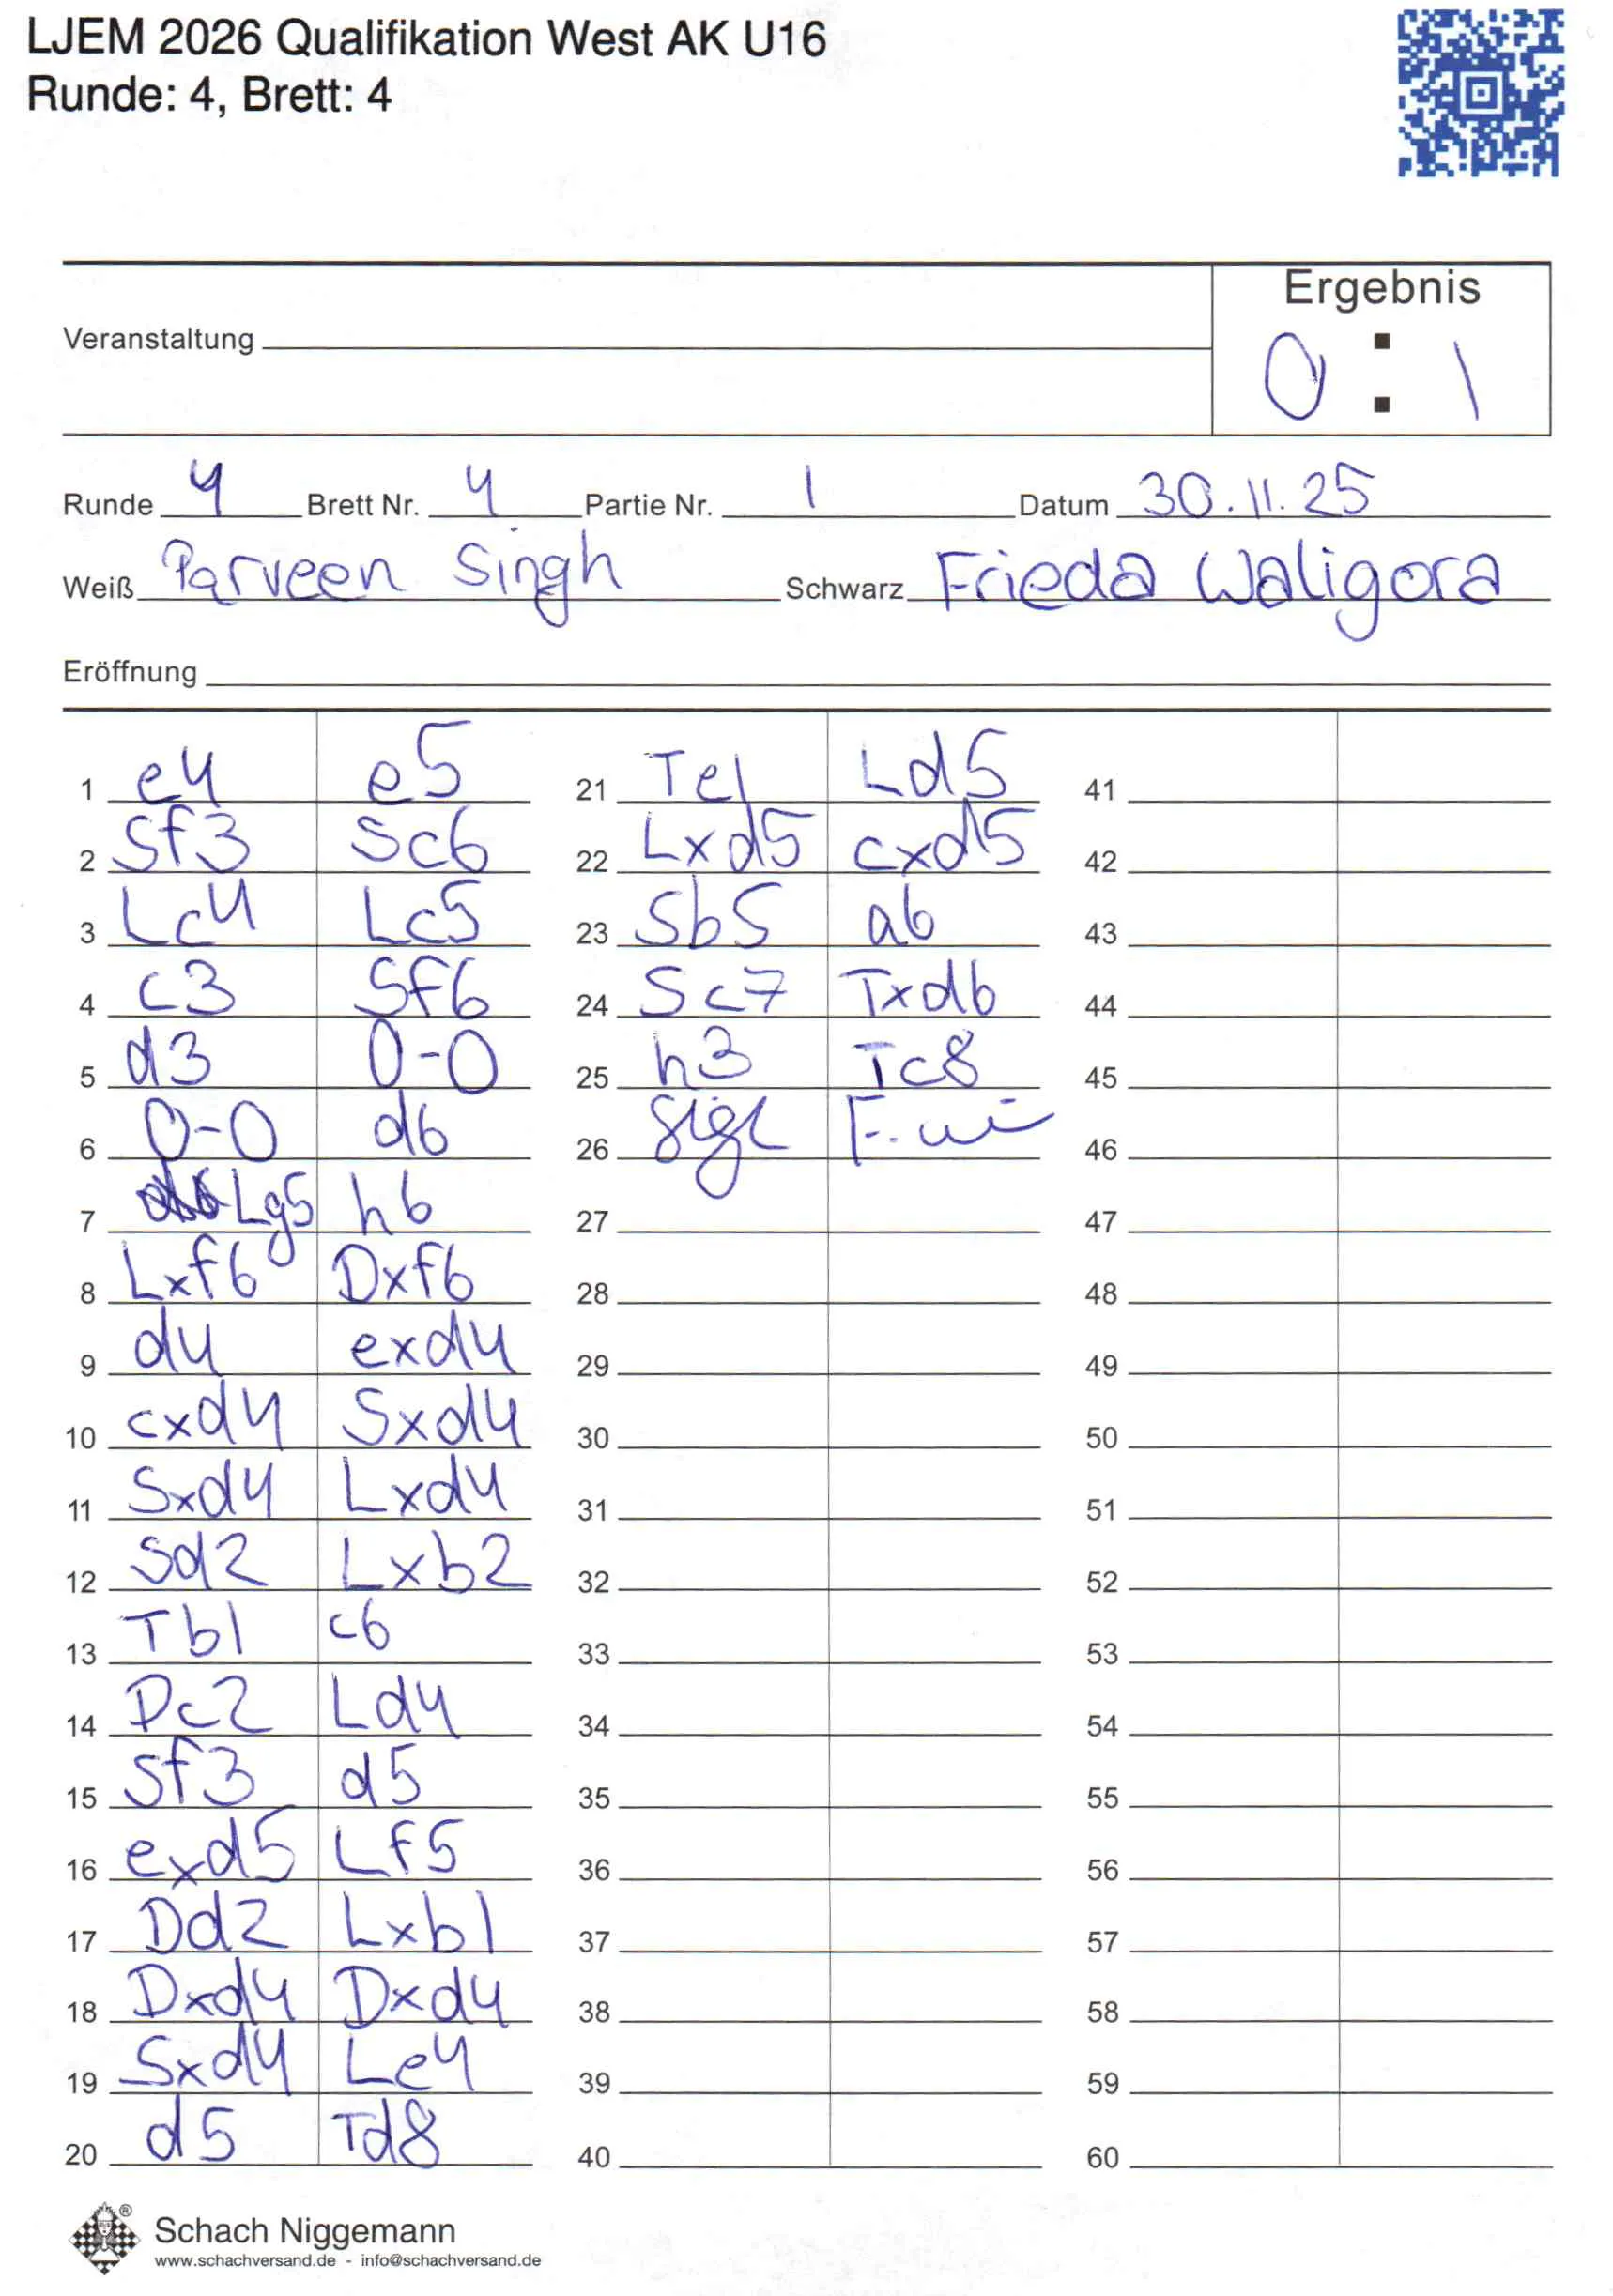 LJEM 2026 Qualifikation West AK U16
Runde: 4, Brett: 4
Ergebnis
Veranstaltung
0 : 1
Runde 4 Brett Nr. 4 Partie Nr. 1 Datum 30.11.25
Weiß Parveen Singh Schwarz Frieda Waligora
Eröffnung
1 e4 e5
2 Sf3 Sc6
3 Lc4 Lc5
4 c3 Sf6
5 d3 0-0
6 0-0 d6
7 Lg5 h6
8 Lxf6 Dxf6
9 d4 exd4
10 cxd4 Sxd4
11 Sxd4 Lxd4
12 Sd2 Lxb2
13 Tb1 c6
14 Dc2 Ld4
15 Sf3 d5
16 exd5 Lf5
17 Dd2 Lxb1
18 Dxd4 Dxd4
19 Sxd4 Le4
20 d5 Td8
21 Te1 Ld5
22 Lxd5 cxd5
23 Sb5 a6
24 Sc7 Txd6
25 h3 Tc8
26
27
28
29
30
31
32
33
34
35
36
37
38
39
40
41
42
43
44
45
46
47
48
49
50
51
52
53
54
55
56
57
58
59
60
Schach Niggemann
www.schachversand.de - info@schachversand.de